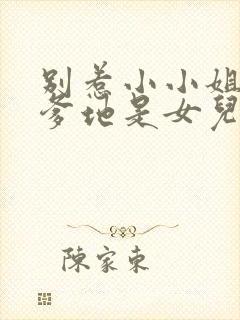 别惹小小姐
爹地是女兒
陳家東